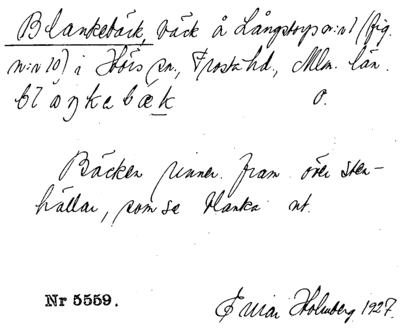 Blankebäck, bäck å Långstorps n:o 1 (fig.
n:o 10) i Hörs sn., Frosta hd, Mlm. län.
blaŋkabæk o.
Bäcken rinner fram över sten-
hällar, som se blanka ut.
Nr 5559. Einar Holmberg 1927.